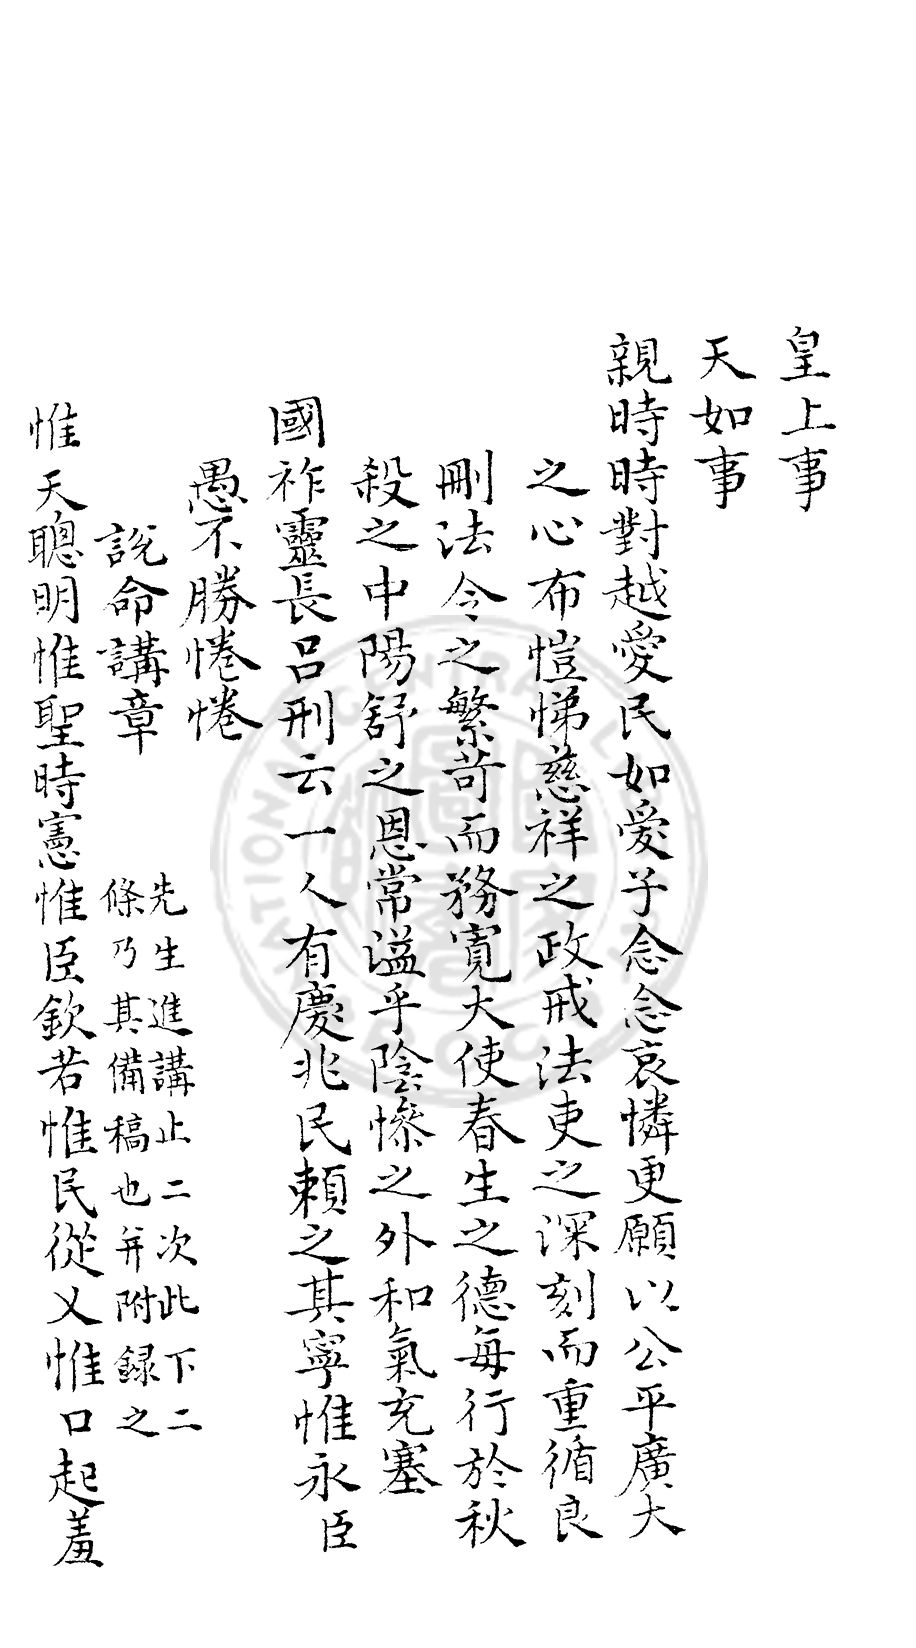 皇上事
天如事
親時時對越愛民如愛子念念哀憐更願以公平廣大
之心布愷悌慈祥之政戒法吏之深刻而重循良
刪法令之繁苛而務寬大使春生之德每行於秋
殺之中陽舒之恩常溢乎陰慘之外和氣充塞
國祚靈長呂刑云一人有慶兆民賴之其寧惟永臣
愚不勝惓惓
說命講章
先生進講止二次此下二
條乃其備稿也并附録之
惟天聰明惟聖時憲惟臣欽若惟民從乂惟口起羞